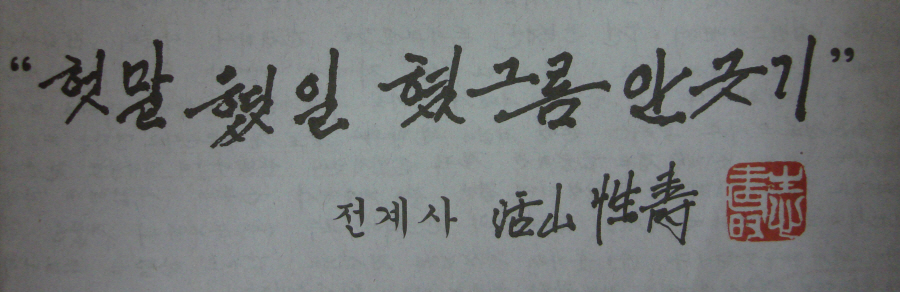 “헛말 헛일 헛그름 안긋기”
전계사 活山 性壽